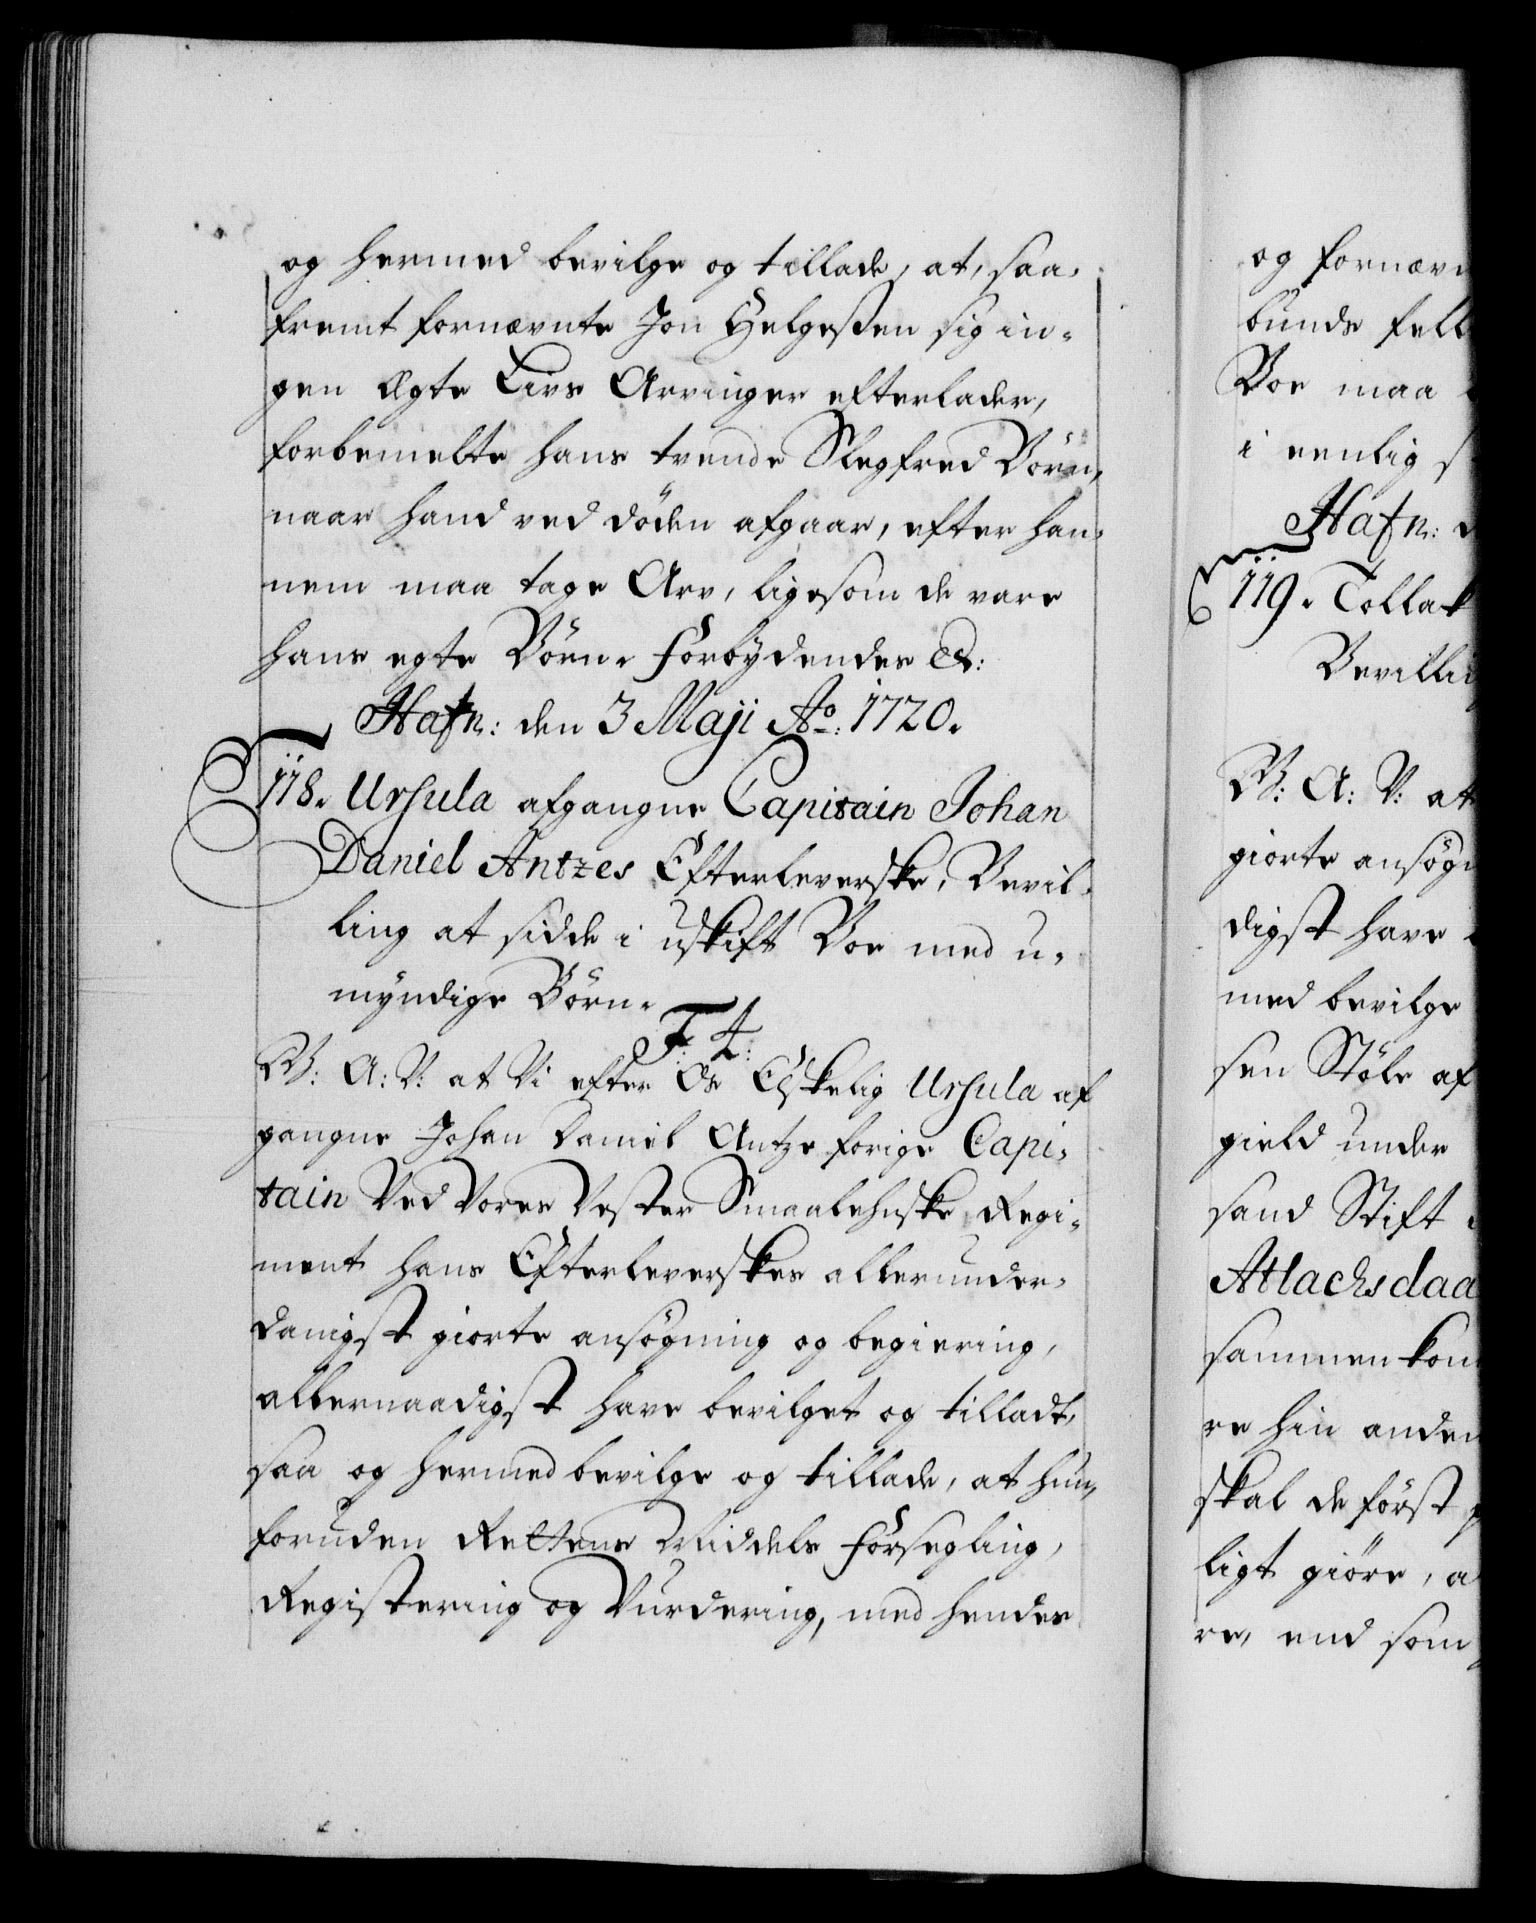 og hermed bevilge og tillade, at, saa-
fremt fornævnte Jon Helgeßen sig in-
gen Ægte Livs Arvinger efterlader,
forbemelte hans tvende Slegfred Börn,
naar hand ved döden afgaar, efter han-
nem maa tage Arv, ligesom de vare
hans egte Börn. Forbydendes &:
Hafn: den 3 Maji Ao: 1720.
118. Ursula afgangne Capitain Johan
Daniel Antzes Efterleverske, Bevil-
ling at sidde i uskift Boe med u-
myndige Börn.
F: 4:
W: A: V: at Vi efter Os Elskelig Ursula af
gangne Johan Daniel Antze forige Capi-
tain Ved Vores Vester Smaalehnske Regi-
ment hans Efterleverskes allerunder-
danigst giorte ansögning og begiering,
allernaadigst have bevilget og tilladt,
saa og hermed bevilge og tillade, at hun,
foruden Rettens Middels Forsegling,
Registering og Vurdering, med hendes
og fornævn
bunds fell
Boe maa
i eenlig s
Hafn: d
119. Tollak
Bevillin
W: A: V: at
giorte ansögn
digst have
med bevilge
sen Støle af
gield under
sand Stift
Atlachsdaa
sammen kom
re hin anden
skal de först
ligt giöre, a
re, end som